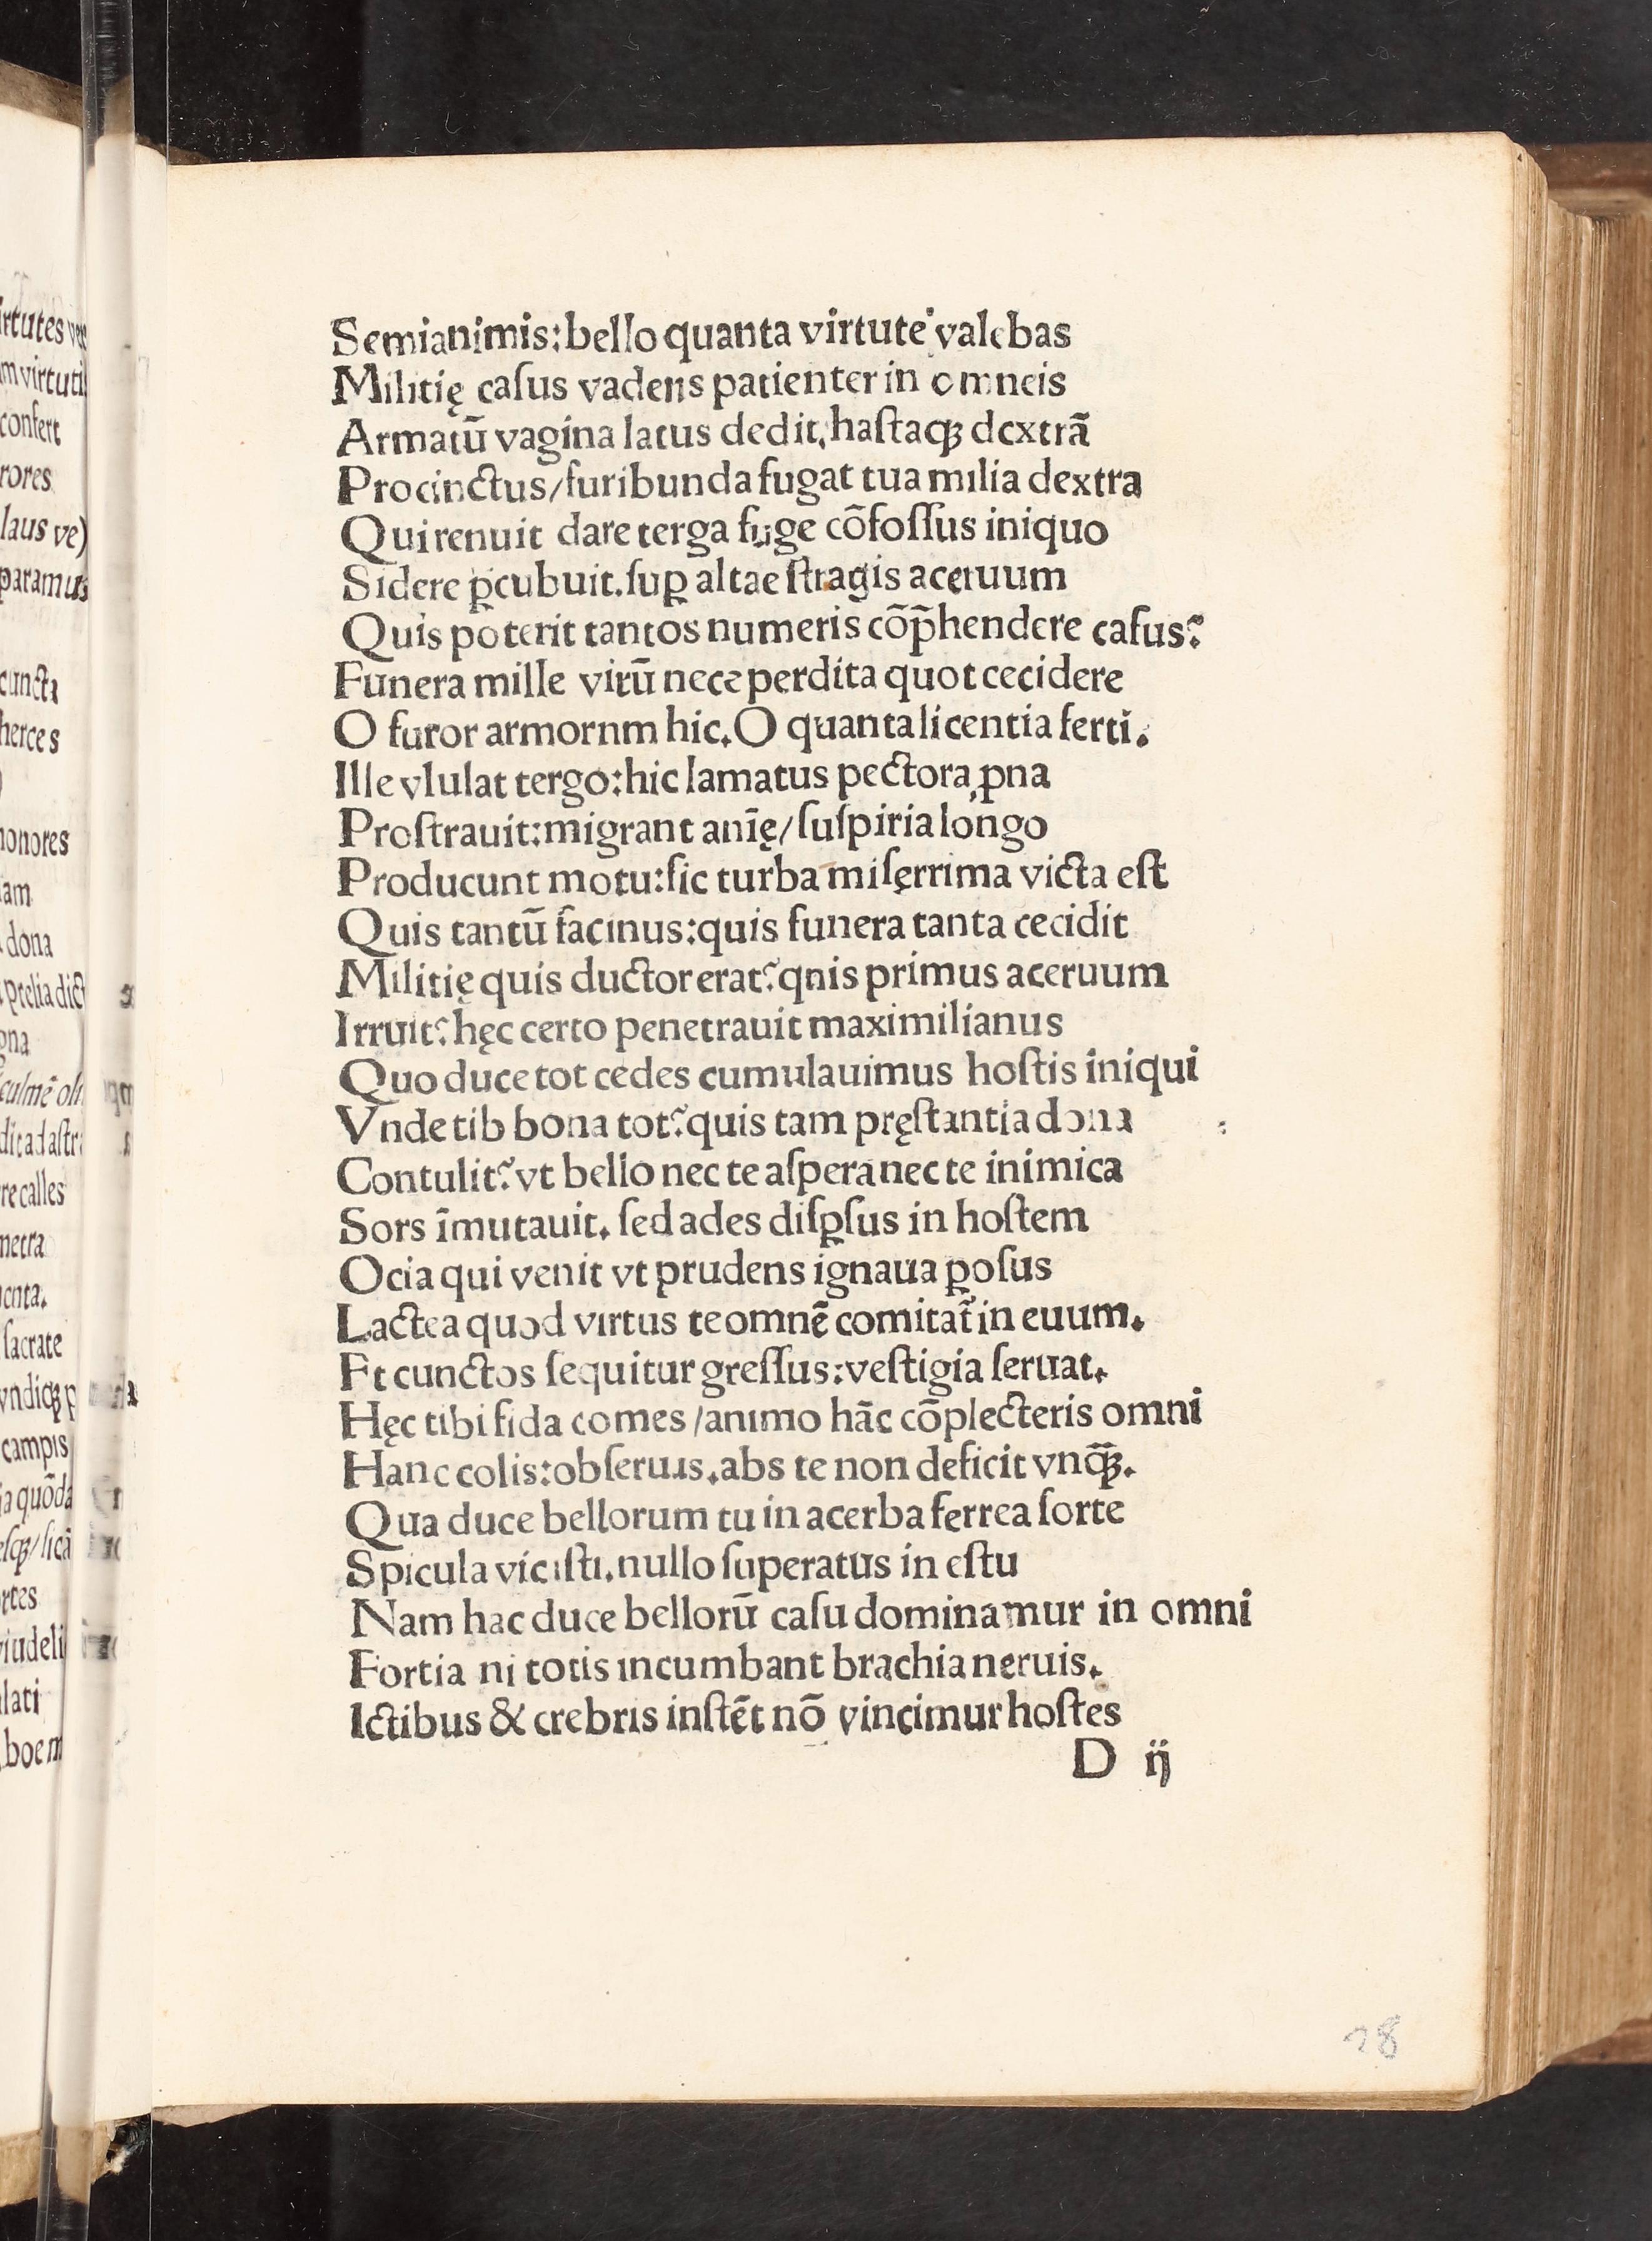 Semianimis:bello quanta virtute valebas
Militię caſus vadens patienter in omneis
Armatū vagina latus dedit,haſtaqꝫ dextrā
Procinctus/furibunda fugat tua milia dextra
Qui renuit dare terga fuge cōfoſſus iniquo
Sidere ꝓcubuit.ſuꝑ altae ſtragis aceruum
Quis poterit tantos numeris cōp̄hendere caſus?
Funera mille virū nece perdita quot cecidere
O furor armornm hic.O quanta licentia ferti.
Ille vlulat tergo:hic lamatus pectora ꝓna
Proſtrauit:migrant anīę/ſuſpiria longo
Producunt motu:ſic turba miſęrrima victa eſt
Quis tantū facinus:quis funera tanta cecidit
Militię quis ductor erat?qnis primus aceruum
Irruit?hęc certo penetrauit maximilianus
Quo duce tot cedes cumulauimus hoſtis iniqui
Vnde tib bona tot?quis tam pręſtantia dona
Contulit?vt bello nec te aſpera nec te inimica
Sors īmutauit. ſed ades diſꝑſus in hoſtem
Ocia qui venit vt prudens ignaua ꝑoſus
Lactea quod virtus te omnē comitat̄ in euum.
Et cunctos ſequitur greſſus:veſtigia ſeruat.
Hęc tibi fida comes/animo hāc cōplecteris omni
Hanc colis:obſeruas.abs te non deficit vnq̄ꝫ.
Qua duce bellorum tu in acerba ferrea ſorte
Spicula viciſti.nullo ſuperatus in eſtu
Nam hac duce bellorū caſu dominamur in omni
Fortia ni totis incumbant brachia neruis.
Ictibus & crebris inſtēt nō vincimur hoſtes
D ij
28